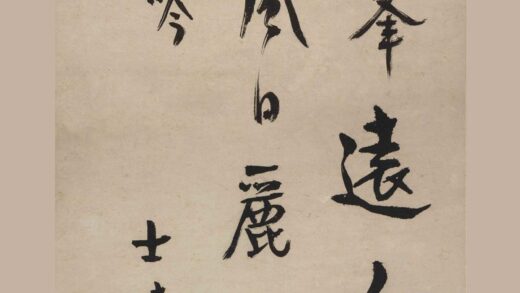 峯遠
風日麗
吟
士